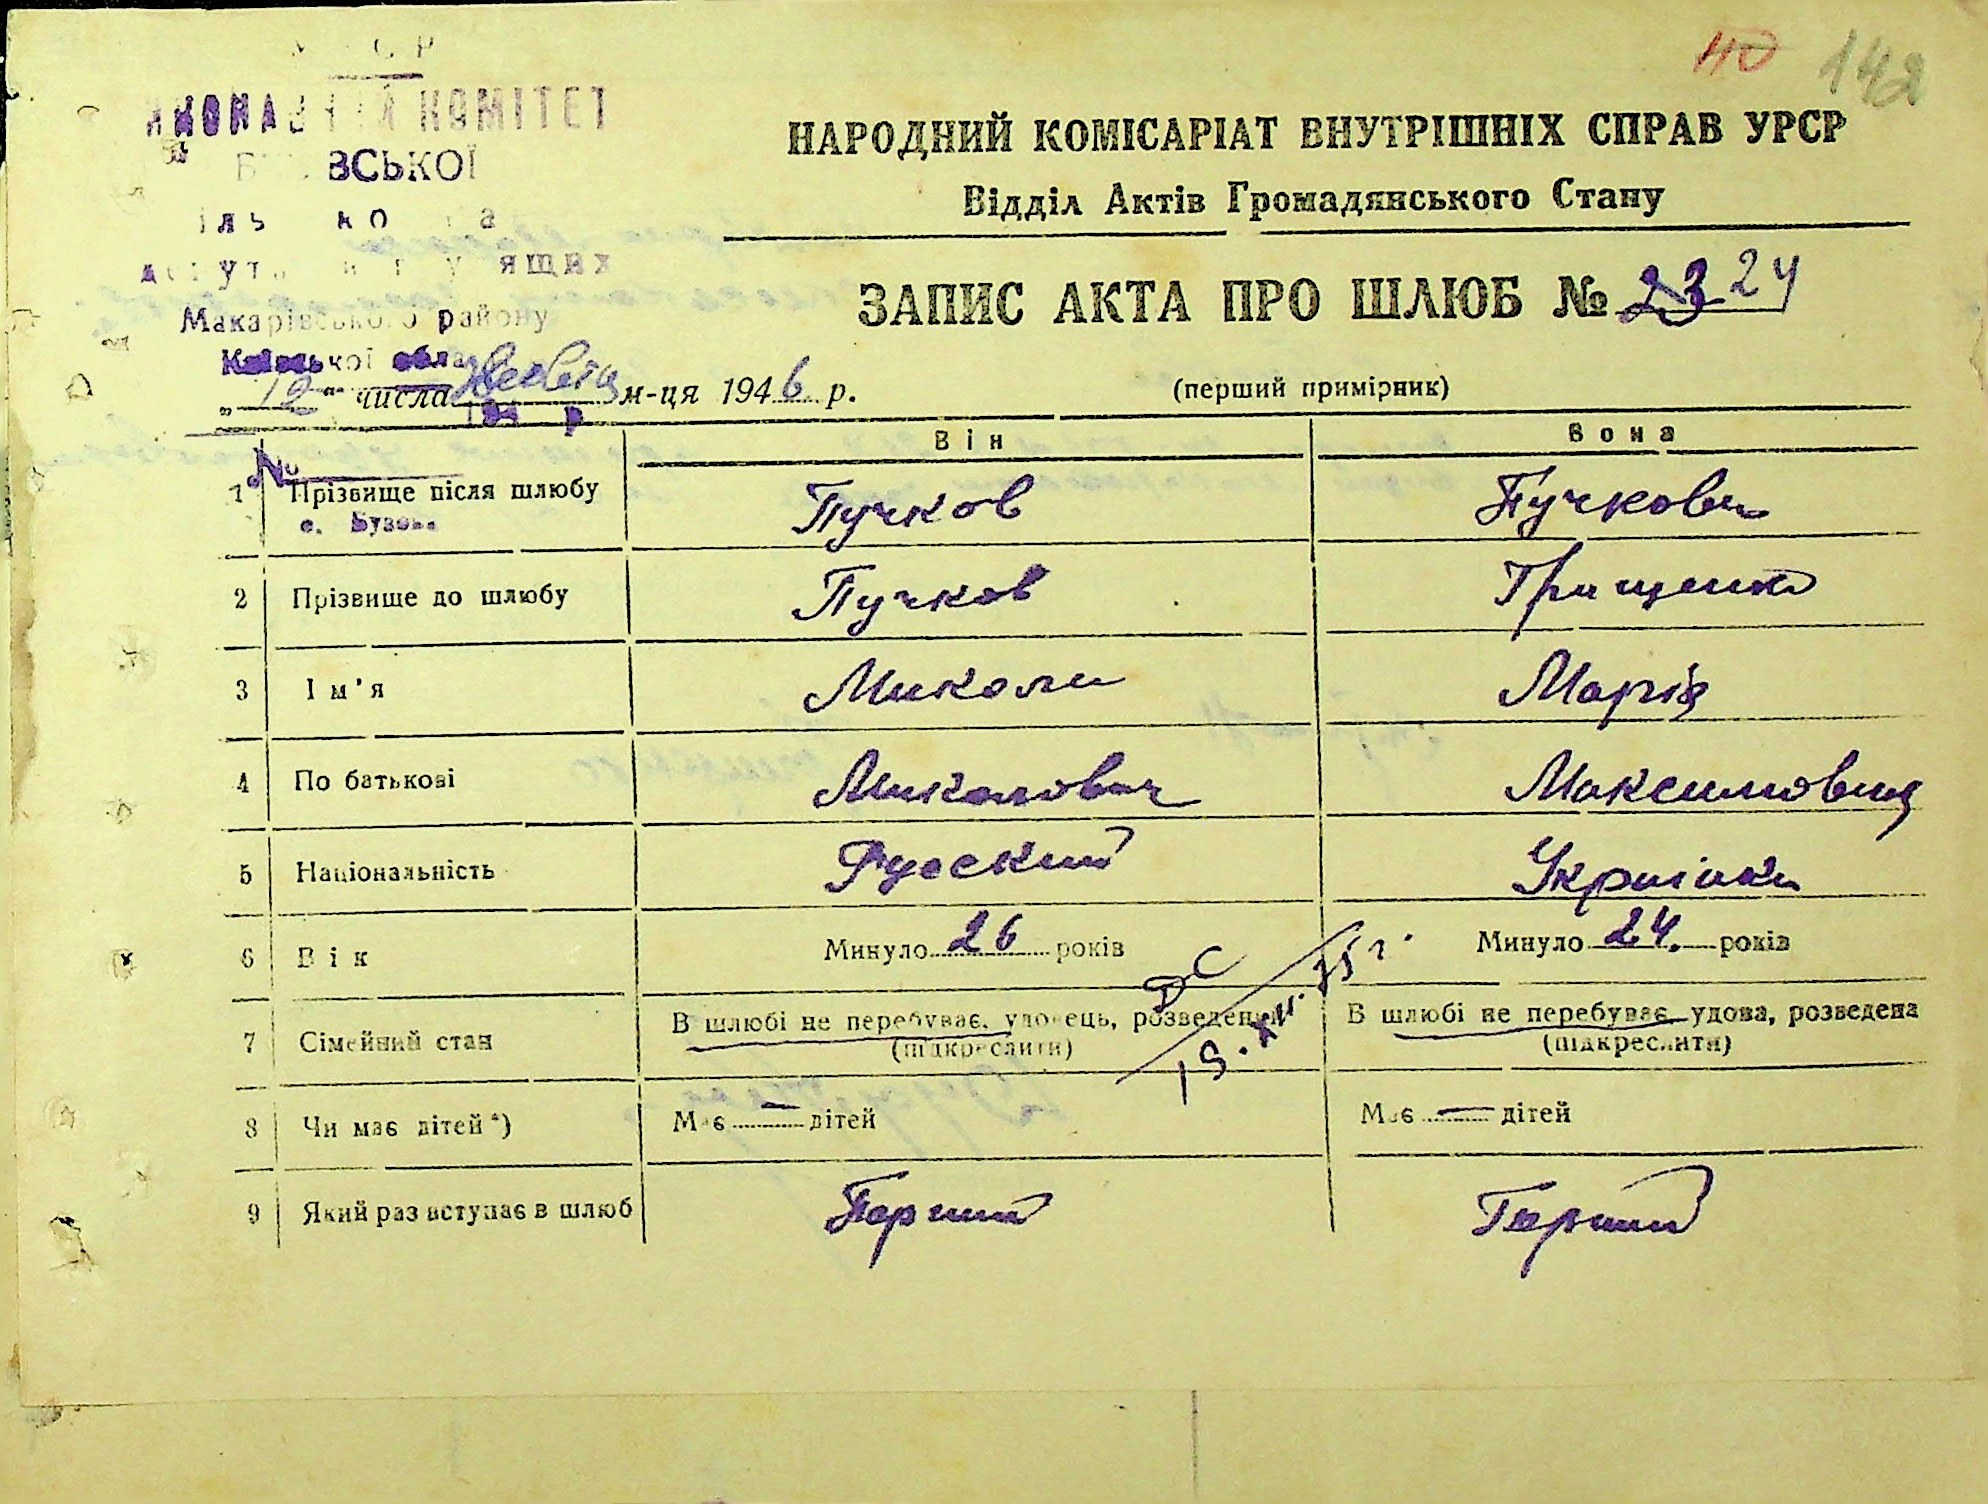 40 142
КОМІТЕТ
ВСЬКОЇ
Макарівського району
Київської обла
НАРОДНИЙ КОМІСАРІАТ ВНУТРІШНІХ СПРАВ УРСР
Відділ Актів Громадянського Стану
ЗАПИС АКТА ПРО ШЛЮБ № 23 24
„12“ числа м-ця 1946 р.
(перший примірник)
Він Вона
№
1 Прізвище після шлюбу Пучков Пучкова
с. Бузова
2 Прізвище до шлюбу Пучков Грищенко
3 Ім'я Микола Марія
4 По батькові Миколович Максимовна
5 Національність Руский Українка
6 Вік Минуло 26 років Минуло 24. років
7 Сімейний стан В шлюбі не перебуває, удовець, розведений В шлюбі не перебуває, удова, розведена
(підкреслити) (підкреслити)
8 Чи має дітей*) Має — дітей Має — дітей
9 Який раз вступає в шлюб Перший Перший